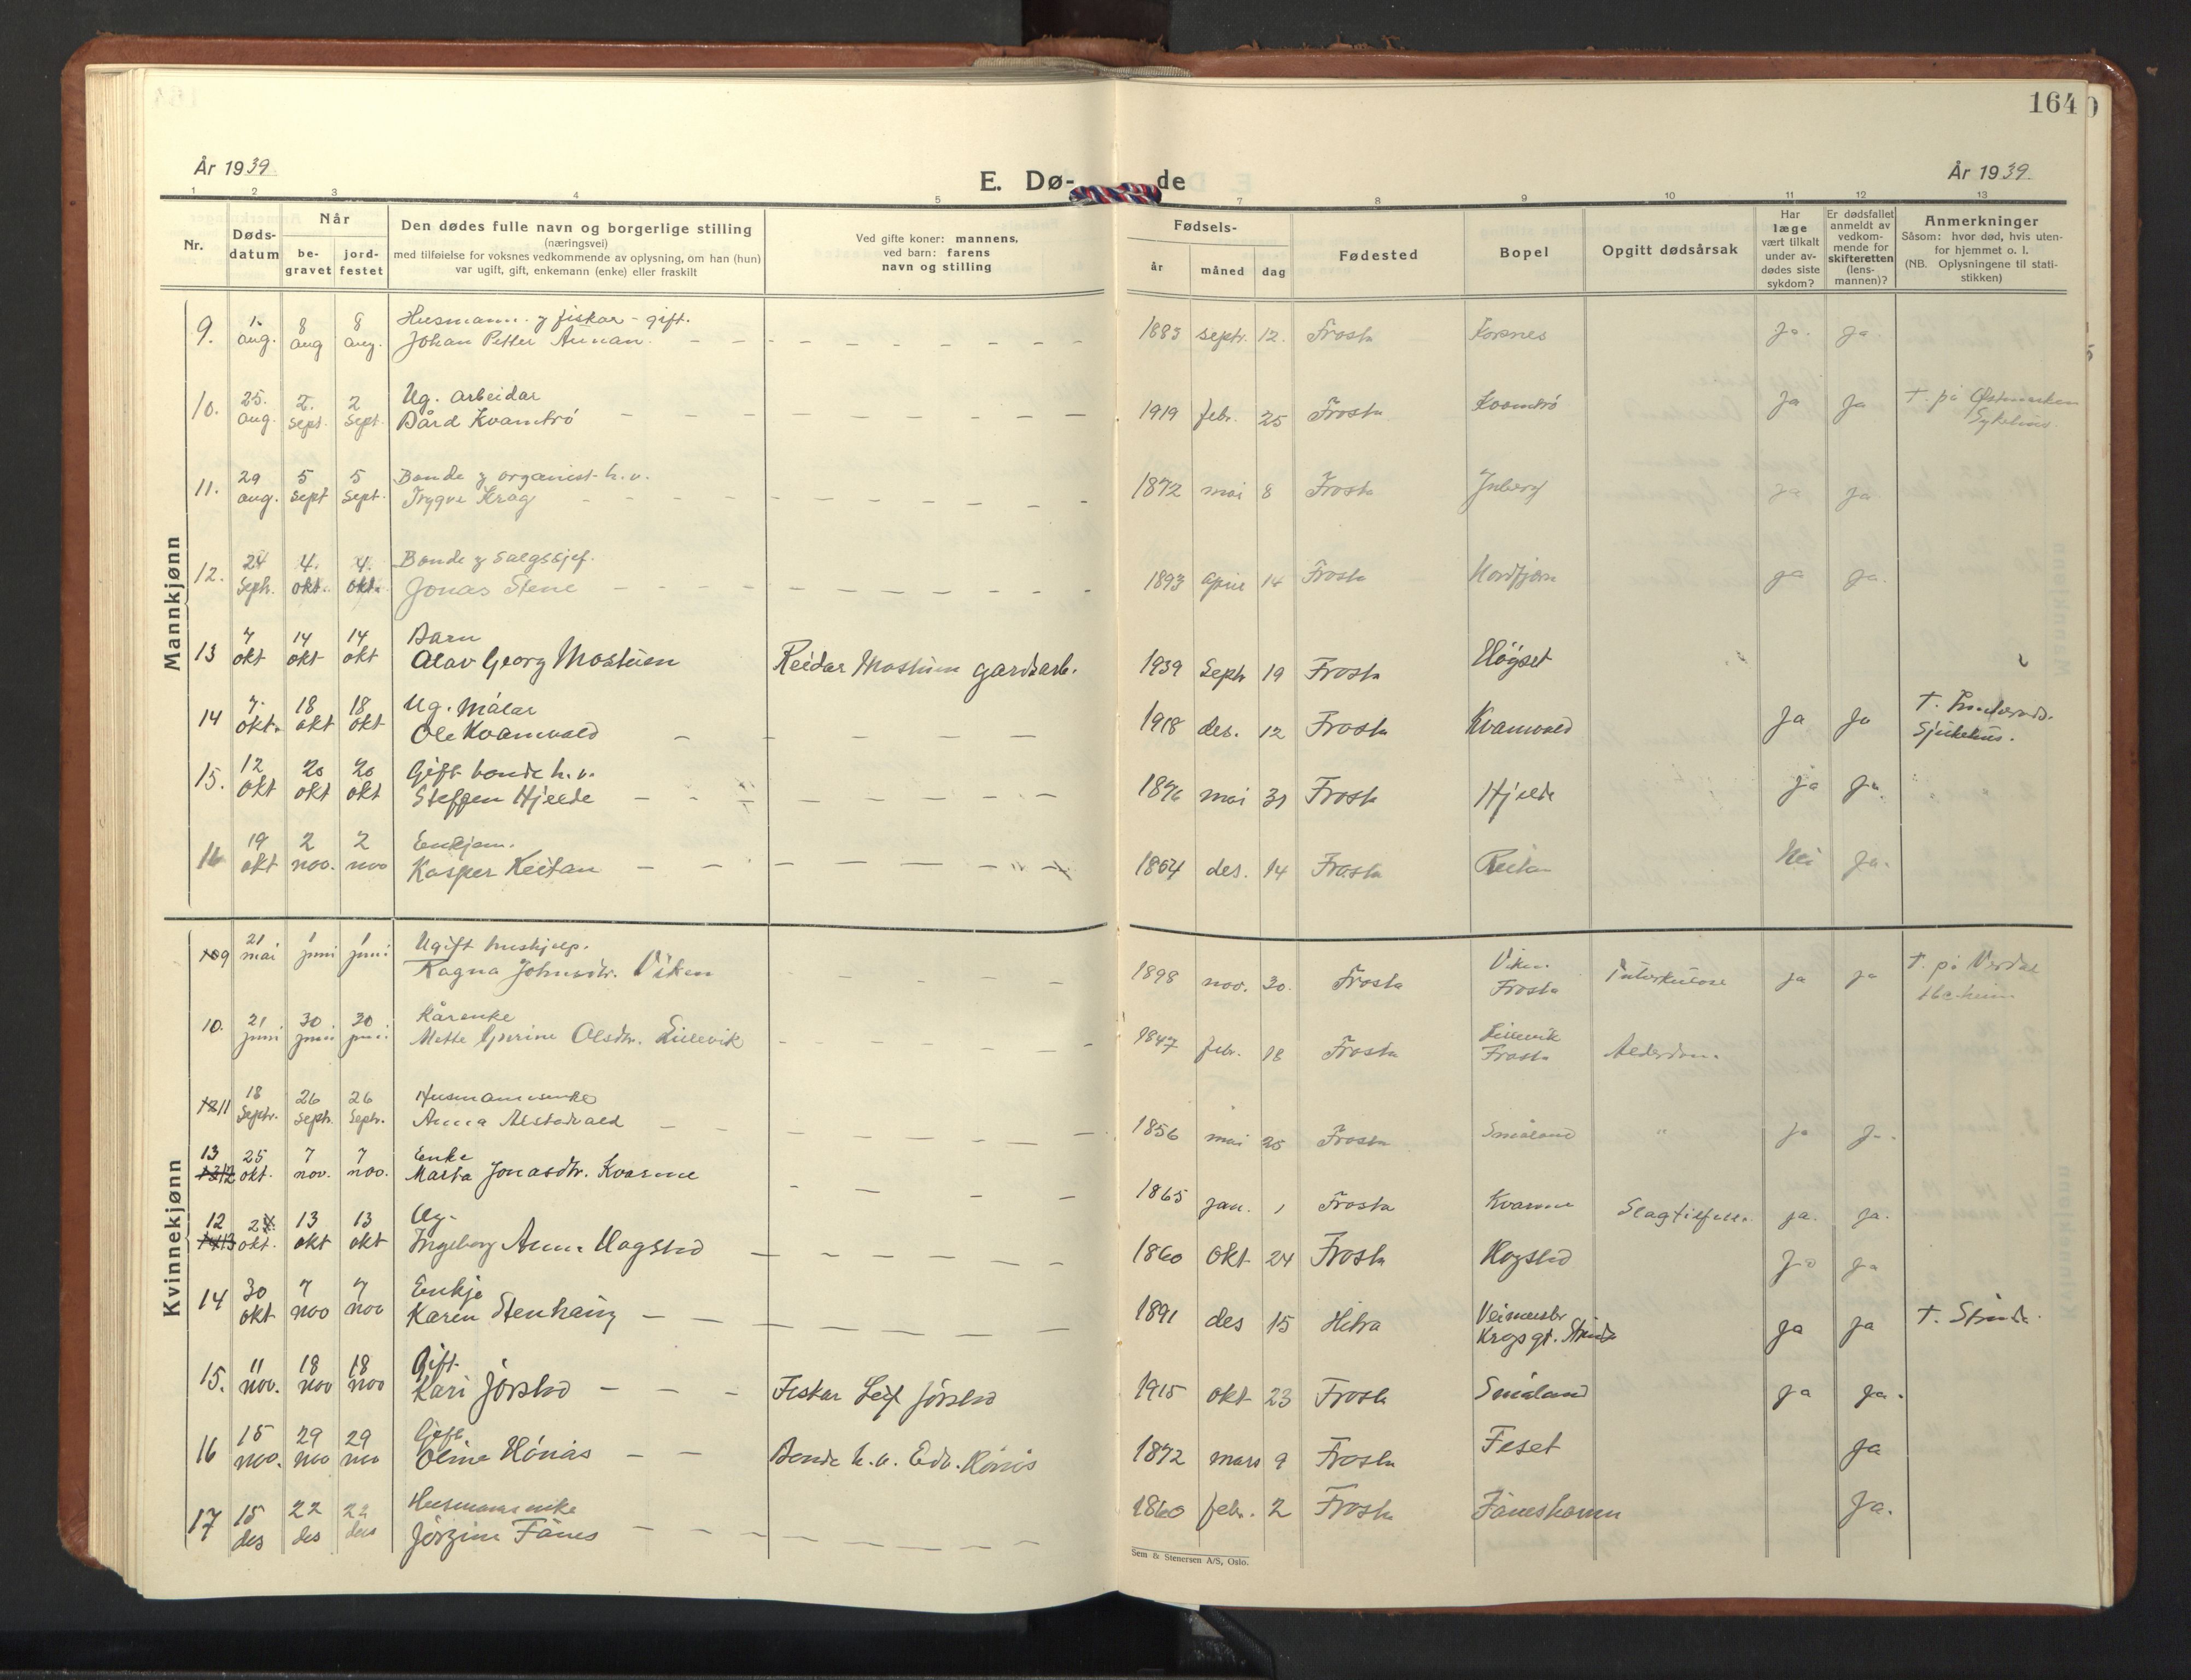 164
År 1939
E. Dø-
de
År 1939
1 2 3 4 5 7 8 9 10 11 12 13
Nr.
Døds-
datum
Når
be-
gravet
jord-
festet
Den dødes fulle navn og borgerlige stilling
(næringsvei)
med tilføielse for voksnes vedkommende av oplysning, om han (hun)
var ugift, gift, enkemann (enke) eller fraskilt
Ved gifte koner: mannens,
ved barn: farens
navn og stilling
Fødsels-
år måned dag
Fødested
Bopel
Opgitt dødsårsak
Har
læge
vært tilkalt
under av-
dødes siste
sykdom?
Er dødsfallet
anmeldt av
vedkom-
mende for
skifteretten
(lens-
mannen)?
Anmerkninger
Såsom: hvor død, hvis uten-
for hjemmet o. l.
(NB. Oplysningene til stati-
stikken)
Mannkjønn
Husmann y fiskar - gift.
9. 1. aug. 8 aug 8 aug. Johan Petter Aunan 1883 septr. 12. Frosta Korsnes Ja. ja.
Ug. arbeidar
10. 25. aug. 2. sept. 2 sept. Bård Kvamtrø 1919 febr. 25 Frosta Kvamtrø Ja Ja † på Østmarken
Sykehus.
Bonde y organist h.v.
11. 29 aug. 5 sept 5 sept. Trygve Krag 1872 mai 8 Frosta Inberg ja ja
Bonde y salgssjef.
12. 24 Septr. 4. okt. 4. okt. Jonas Stene 1893 April 14 Frosta ja ja.
Barn
13 7 okt 14 okt 14 okt Olav Georg Mostuen Reidar Mostuen gardsarb. 1939 Septr 19 Frosta Hógset
Ug. målar
14 7. okt. 18 okt 18 okt Ole Kvamvold 1918 des. 12 Frosta Kvamvold Ja Ja †.
Sjukehus.
Gift bonde h.v.
15. 12 okt 20 okt 20 okt Steffen Hjelde 1876 mai 31 Frosta Hjelde ja ja.
Enkjem.
16 19 okt 2 nov. 2 nov Kasper Reitan 1864 des. 14 Frosta Reitan Nei Ja.
Kvinnekjønn
Ugift hushjelp.
9 21 mai 1 juni 1 juni Ragna Johnsdtr. Viken 1898 nov. 20. Frosta Viken
Frosta Tuberkulose ja ja †. på Verdal
Kårenke
10. 21 juni 30 juni 30 juni Mette Gurine Olsdtr. Lillevik 1847 febr. 18 Frosta Lillevik
Frosta Alderdom.
Husmannsenke
11 18 Septr. 26 Septr. 26 Septr. Anna Alstadvald 1856 mai 25 Frosta Småland " ja ja.
Enke
13 25 okt. 7 nov. 7 nov. Marta Jonasdtr. Kvamme 1865 jan. 1 Frosta Kvamme Slagtilfelle. ja. ja.
Ug.
12 okt. 13 okt 13 okt Ingeborg Anna Hogstad 1860 okt 24 Frosta Hogstad Ja ja
Enkje
14 30 okt 7 nov 7 nov Karen Stenhaug 1891 des 15 Hitra
Krogs gt. Strinda ja ja †. Strinda.
Gift
15. 11 nov. 18 nov 18 nov Kari Jørstad Fiskar Leif Jørstad 1915 okt 23 Frosta Småland ja ja.
Gift.
16 15 nov. 29 nov 29 nov Oline Hónås Bonde h.v. Edv. Hónås 1872 mars 9 Frosta Feset ja
Husmannsenke
17 15 des 22 des 22 des Jørgine Fånes 1860 febr. 2 Frosta Fåneshamn Ja.
Sem & Stenersen A/S, Oslo.